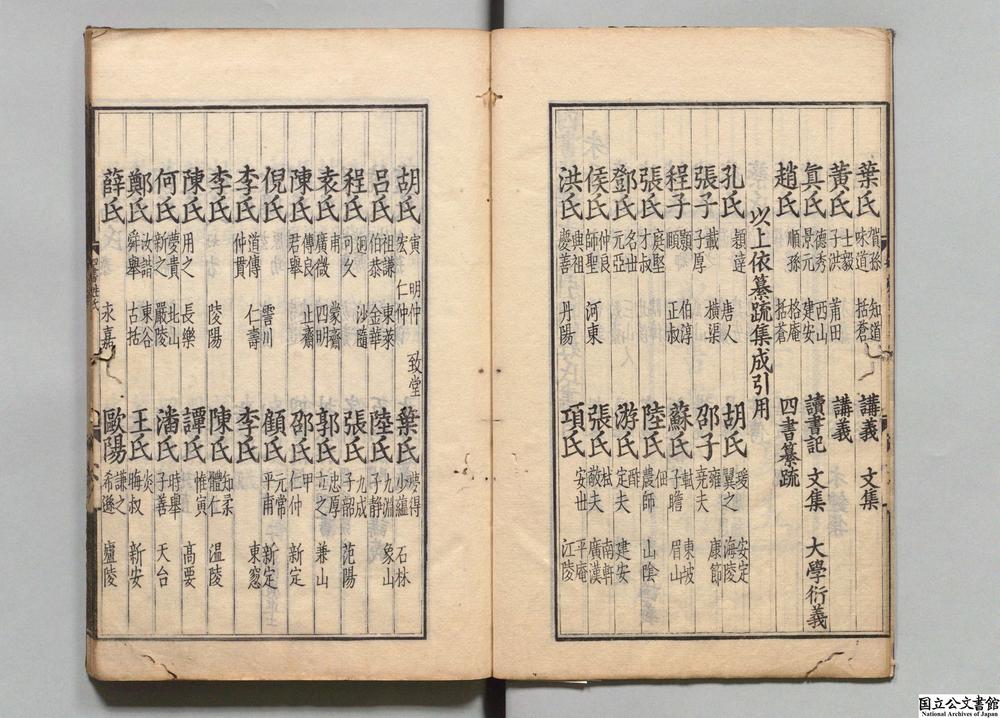 葉氏 賀孫 味道 知道 括蒼 講義 文集
黄氏 士毅 子洪 莆田 講義
真氏 德秀 景元 西山 建安 讀書記 文集 大學衍義
趙氏 順孫 格庵 括蒼 四書纂疏
以上依纂疏集成引用
孔氏 穎達 唐人 胡氏 瑗 翼之 安定 海陵
張子 載 子厚 橫渠 邵子 雍 堯夫 康節
程子 顥 頤 伯淳 正叔 蘇氏 軾 子瞻 東坡 眉山
張氏 庭堅 才叔 陸氏 佃 農師 山陰
鄧氏 名世 元亞 游氏 酢 定夫 建安
侯氏 仲良 師聖 河東 張氏 栻 敬夫 南軒 廣漢
洪氏 興祖 慶善 丹陽 項氏 安世 平庵 江陵
胡氏 寅 明仲 宏 仁仲 致堂 葉氏 夢得 少蘊 石林
呂氏 祖謙 伯恭 東萊 金華 陸氏 九淵 子靜 象山
程氏 迥 可久 沙隨 張氏 九成 子韶 范陽
袁氏 甫 廣微 蒙齋 四明 郭氏 忠厚 立之 兼山
陳氏 傅良 君舉 止齋 邵氏 甲 仁仲 新定
倪氏 霅川 顧氏 元常 平甫 新定
李氏 道傳 仲貫 仁壽 李氏 東窓
李氏 陵陽 陳氏 知柔 體仁 温陵
陳氏 用之 長樂 譚氏 惟寅 高要
何氏 夢貴 新之 北山 嚴陵 潘氏 時舉 子善 天台
鄭氏 汝諧 舜舉 東谷 古括 王氏 炎 晦叔 新安
薛氏 永嘉 歐陽 謙之 希遜 廬陵
国立公文書館
National Archives of Japan